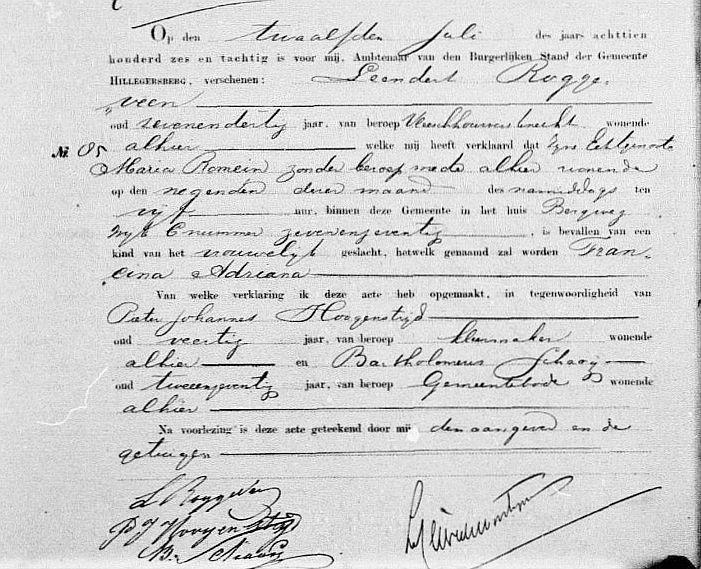 Op den twaalfden Juli des jaars achttien
honderd zes en tachtig is voor mij, Ambtenaar van den Burgerlijken Stand der Gemeente
HILLEGERSBERG, verschenen: Leendert Rogge-
veen
oud zevenendertig jaar, van beroep Vleeschhouwersknecht wonende
No. 85 alhier welke mij heeft verklaard dat zyne Echtgenoote
Maria Romein zonder beroep mede alhier wonende
op den negenden dezer maand des namiddags ten
vijf uur, binnen deze Gemeente in het huis Bergweg
wyk C nummer zevenenzeventig, is bevallen van een
kind van het vrouwelyk geslacht, hetwelk genaamd zal worden Fran-
cina Adriana
Van welke verklaring ik deze acte heb opgemaakt, in tegenwoordigheid van
Pieter Johannes Hoogenstryd
oud veertig jaar, van beroep kleermaker wonende
alhier en Bartholomeus Schaay
oud tweeenzeventig jaar, van beroep Gemeentebode wonende
alhier
Na voorlezing is deze acte geteekend door mij den aangever en de
getuigen
L Roggeveen
P J Hoogenstryd
B. Schaay